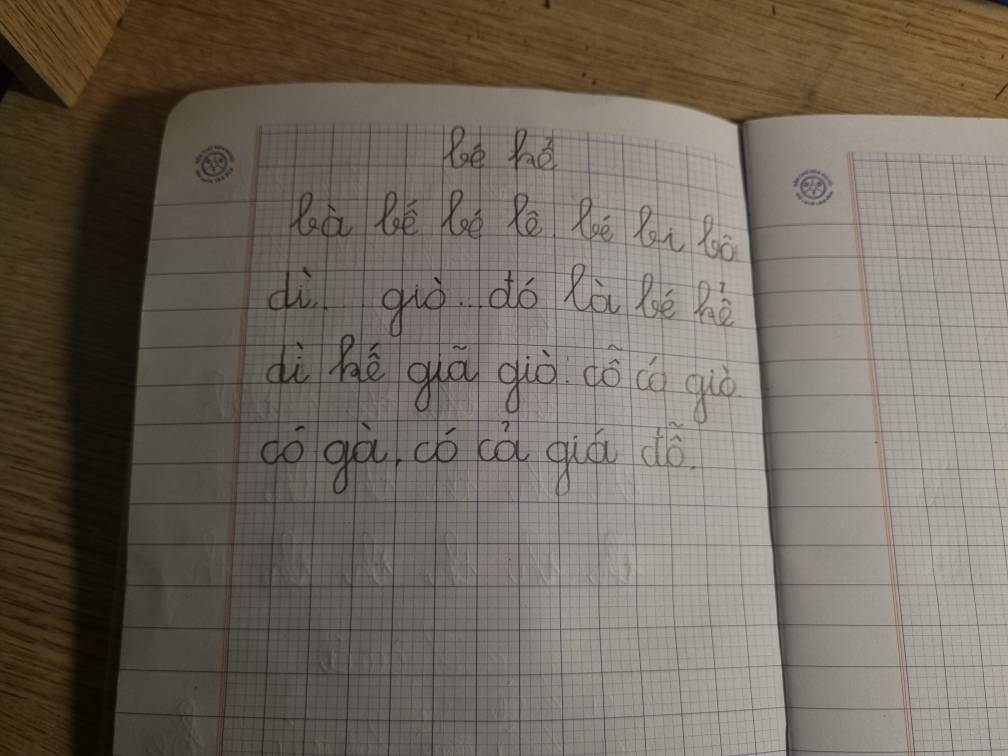 bé hê
bà bế bé lê. bé bi bô
dì. giò.. đó là bé hê
dì hế giã giò. cỗ có giò
có gà, có cả giá đỗ.